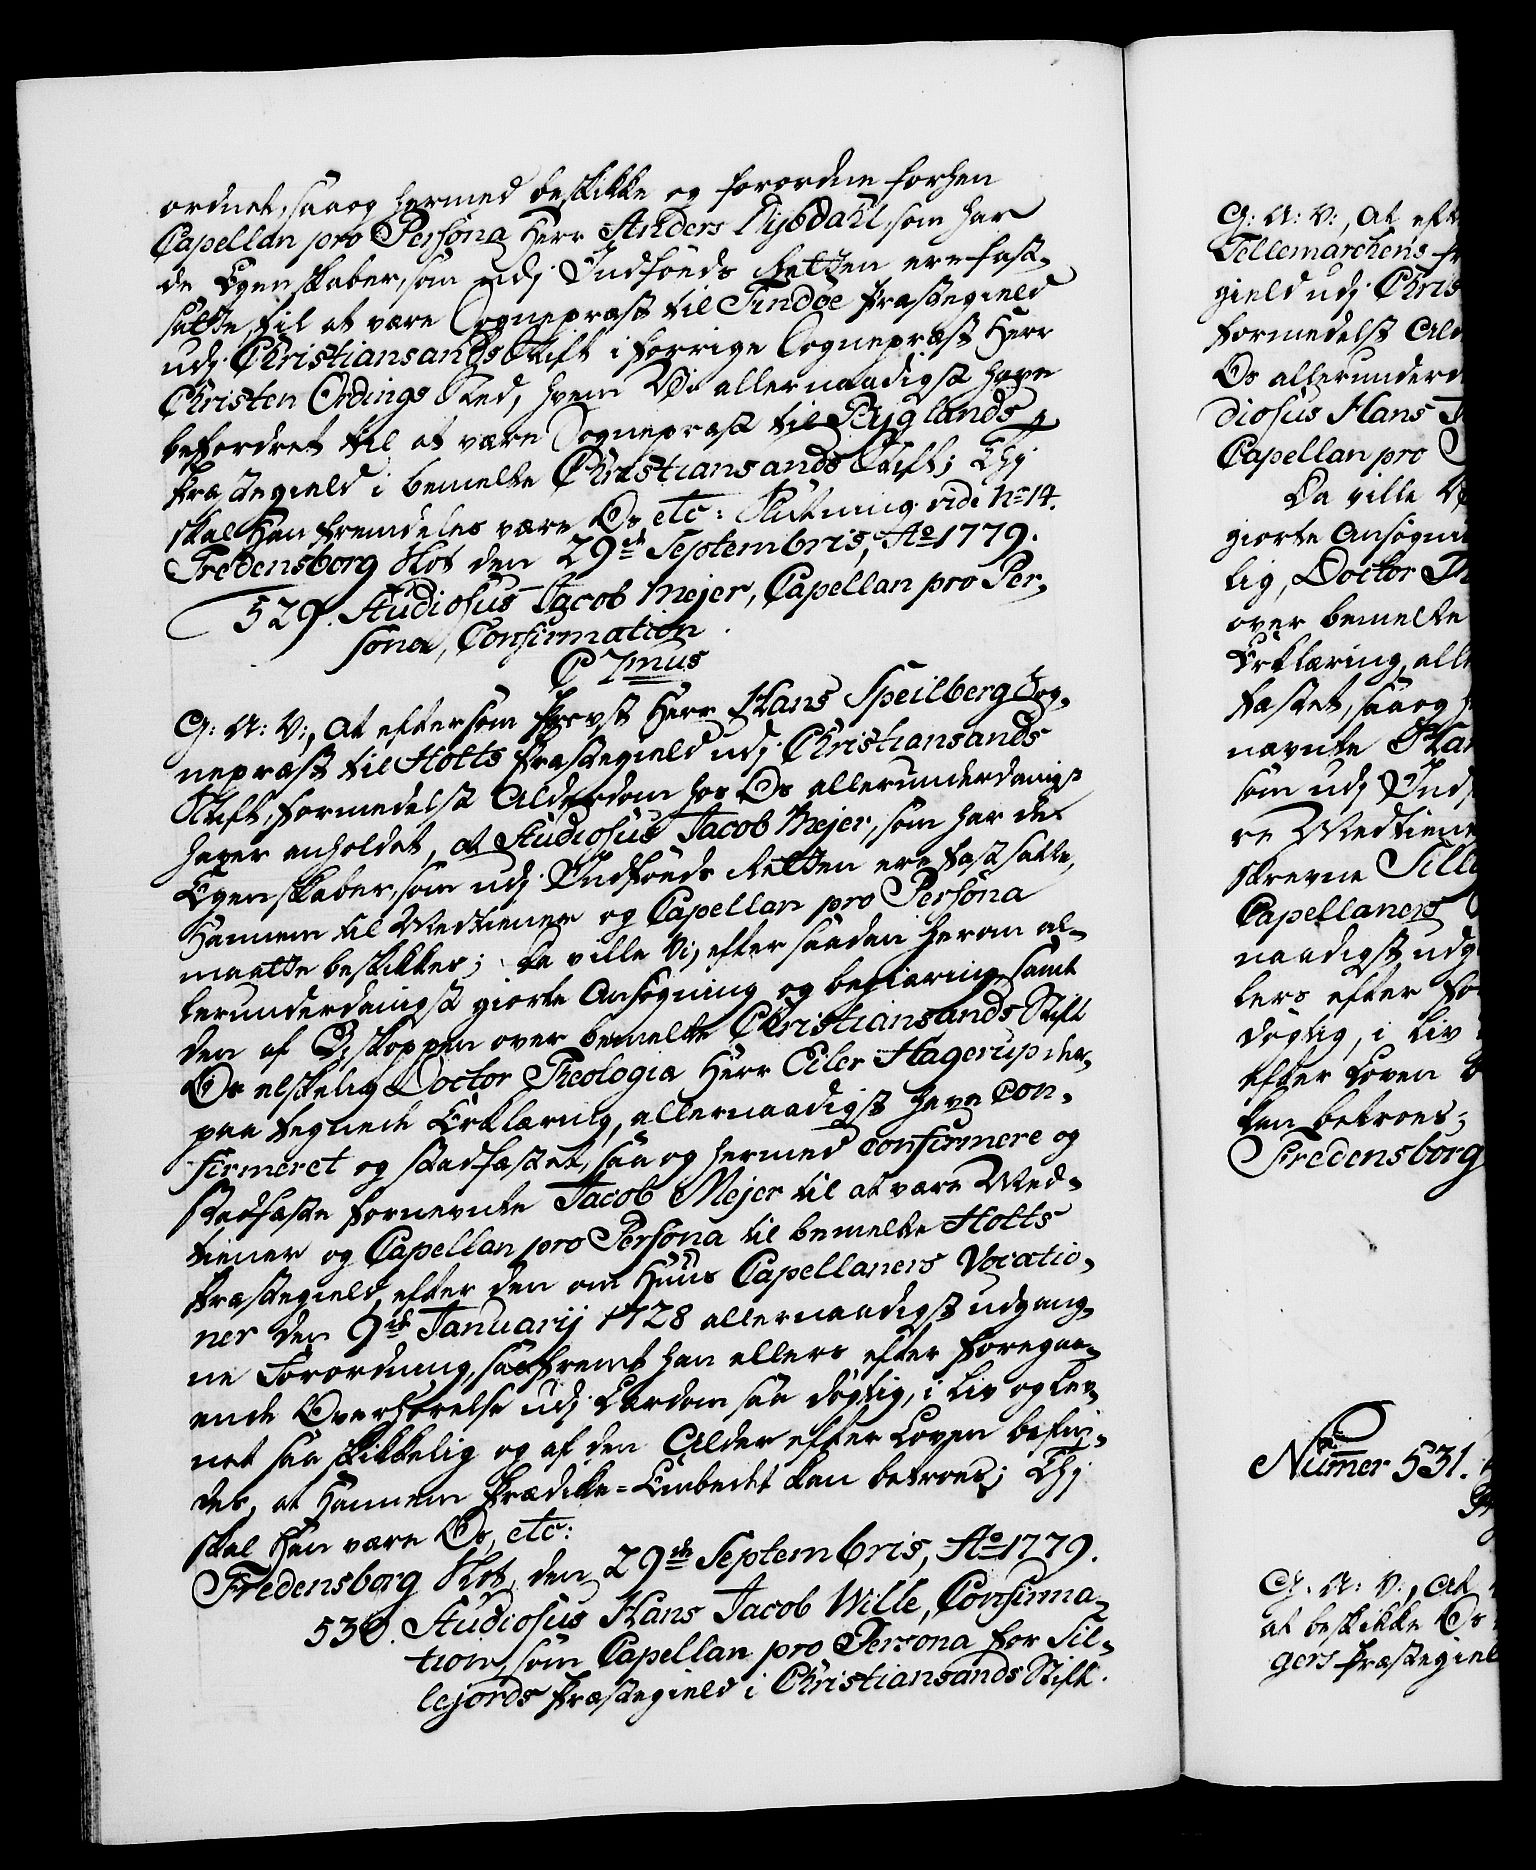 ordnet, saa og hermed beskikke og forordne forhen
Capellan pro Persona Herr Anders Nysdahl som har
de Egenskaber, som udj Indföds Retten ere fast-
satte, til at være Sognepræst til Findöe Præstegield
udj Christiansands Stift i forrige Sognepræst Herr
Christen Ordings Sted, hvem Vi allernaadigst have
befordret til at være Sognepræst til Byglands
Præstegield i bemelte Christiansands Stift; Thj
skal Han fremdeles være Os etc: Slutning vide No 14.
Fredensborg Slot den 29de Septembris, Ao 1779.
529. Studiosus Jacob Mejer, Capellan pro Per-
sona, Confirmation.
C 7mus
G: A: V:, At eftersom Provst Herr Hans Speilberg Sog-
nepræst til Holts Præstegield udj Christiansands
Stift, formedelst Alderdom hos Os allerunderdanigst
haver anholdet, at Studiosus Jacob Mejer, som har de
Egenskaber, som udj Indföds Retten ere fastsatte,
Hannem til Medtiener og Capellan pro Persona
maatte beskikkes; Da ville Vi, efter saadan herom al-
lerunderdanigst giorte Ansögning og begiæring samt
den af Biskoppen over bemelte Christiansands Stift
Os elskelig Doctor Theologia Herr Eiler Hagerup der-
paa tegnede Erklæring, allernaadigst have Con-
firmeret og stadfæstet, saa og hermed confirmere og
stadfæste fornevnte Jacob Mejer til at være Med-
tiener og Capellan pro Persona til bemelte Holts
Præstegield, efter den om Huus Capellaners Vocatio-
ner den 9de Januarij 1728 allernaadigst udgang-
ne Forordning, saafremt han ellers efter foregaa-
ende Overhörelse udj Lærdom saa dögtig, i Liv og Lev-
net saa skikkelig og af den Alder efter Loven befin-
des, at Hannem Prædike-Embedet kan betroes; Thj
skal Han være Os, etc:
Fredensborg Slot, den 29de Septembris, Ao 1779.
530. Studiosus Hans Jacob Wille, Confirma-
tion, som Capellan pro Persona for Sil-
lejords Præstegield i Christiansands Stift.
G: A: V:, At eft
Tellemarchens
gield udj Chris
formedelst Ald
Os allerunderd
diosus Hans
Capellan pro
Da ville
giorte Ansögni
lig, Doctor Th
over bemelte
Erklæring, all
fæstet, saa og
navnte Han
som udj Ind
re Medtiene
skrevne Sill
Capellaners
naadigst udg
lers efter for
dögtig, i Liv
efter Loven
kan betroes;
Fredensborg
Numer 531.
G: A: V:, At
at beskikke Os
gers Præstegiel